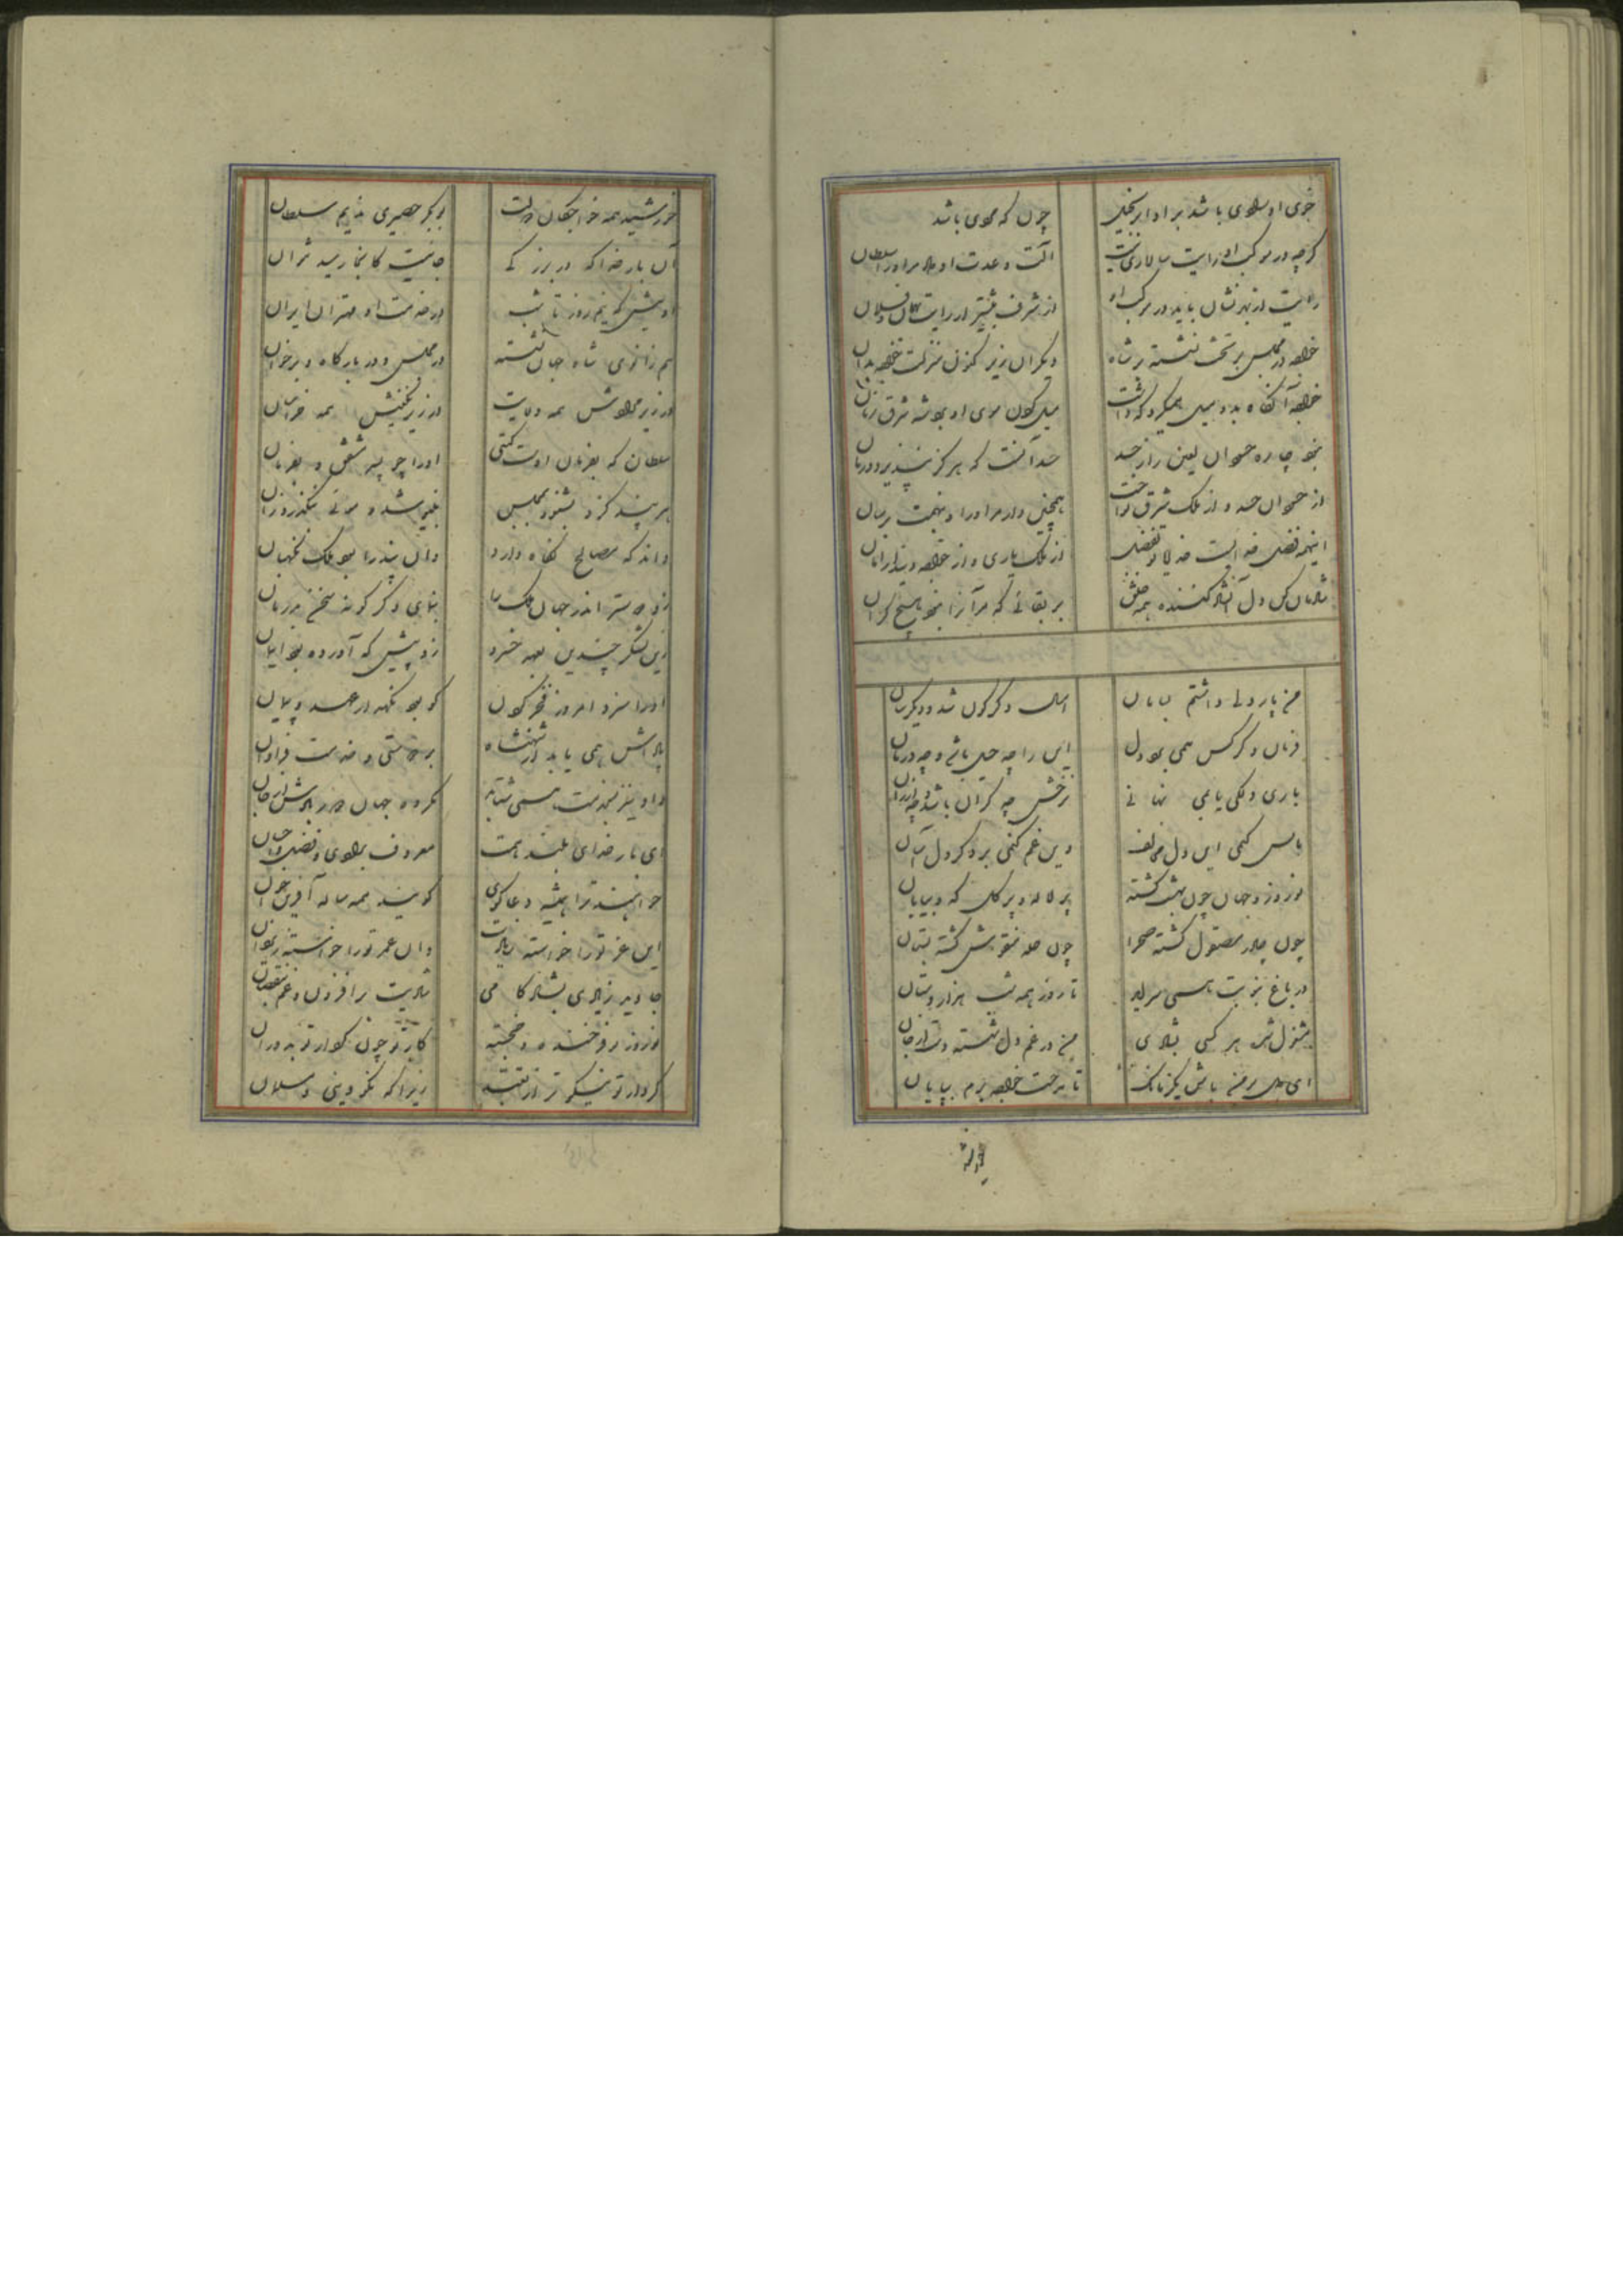 خوی او رادی باشد بر او بر نخیل چون که رادی باشد
گرچه در موکب او رایت سالاری نیست آلت و عدت او داد مر او را سلطان
رایت از بهر نشان باید در مرکب او از شرف بیشتر از رایت بهمان و فلان
خواجه در مجلس بر تخت نشسته بر شاه دیگران زیر کنون منزلت خواجه بدان
خواجه آنگاه بدو میل همیکرد که داشت میل کنون سوی او بود شه شرق زمان
بود چاره حسودان لعین را ز حسد حسد آنست که هرگز نپذیرد درمان
از حسودان حسد و از ملک شرق نواخت همچنین دارد مر او را و بهمت برسان
اینهمه فضل خدایست خدایا تو بفضل از ملک یاری و از خواجه وفا
شادمان کن دل آن شاد کننده همه خلق بر بقائی که مر آنرا نبود هیچ کران
من پار دلی داشتم بسامان امسال دگرگون شد و دیگرسان
فرمان دگر کس همی برد دل این را چه حیل باشد و چه درمان
باری دلکی یابمی نهانی نرخش چه گران باشد و چه ارزان
تا بس کنمی این دل مخالف وین غم کنمی بر دگر دل آسان
نوروز و جهان چون بهشت گشته پر لاله و پر گل که و بیابان
چون چادر مصقول گشته صحرا چون حله منقوش گشته بستان
در باغ بنوبت همی سراید تا روز همه شب هزار دستان
مشغول شده هر کسی بشادی من در غم دل شسته دست از جان
ای دل بر من باش یکزمانک تا مدحت خواجه برم بپایان
خورشید
خورشید همه خواجگان دولت بوبکر حصیری ندیم سلطان
آن بار خدا که در بزرگی جائیست کانجا رسید نتوان
او پیش که نیم روز تا شب در خدمت او مهتران ایران
هم زانوی شاه جهان نشسته در مجلس و در بارگاه و بر خوان
در زیر مرادش همه ولایت در زیر نگینش همه خراسان
سلطان که بفرمان اوست گیتی او را چو پسر مشفق و بفرمان
هر پند کزو بشنود بمجلس بنیوشد و مویی نگذرد زان
داند که مصالح نگاه دارد وان پند را بود ملک نگهبان
زو دوستتر اندر جهان ملک را بنمای و دگر گونه سخن مران
زین لشکر چندین بعهد خسرو زو پیش که آورده بود ایمان
او را سزد امروز فخر کردن کو بود نگهدار عهد و پیمان
پاداش همی یابد از شهنشاه بر دوستی و خدمت فراوان
واو نیز بخدمت همی شتابد کرده جهان در بر دادش از جان
ای بار خدای بلند همت معروف برادی و فضل و احسان
خواهند ترا همیشه دعاگوی گویند همه ساله آفرین خوان
این عز تو را خواسته زیادت وان عمر تو را خواسته
جاوید زیادی بشادکامی شادیت بر افزون و غم بنقصان
نوروز تو فرخنده و خجسته کار تو چو کردار تو بدوران
کردار تو نیکوتر از تعبد زیرا که نکو دینی و مسلمان